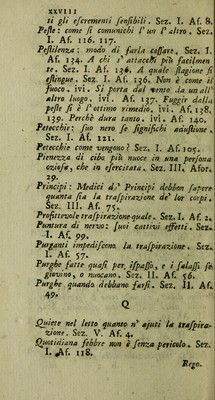 xxviii
ti gli escrementi sensibili. Sez. I. Af. 8.
Peste: come si comunichi l' un l' altro. Sez.
I. Af. 116. 117.
Pestilenza: modo di farla cessare. Sez. I.
Af. 134. A chi s' attacchi più facilmen
te. Sez. I. Af. 136. A quale stagione si
estingue. Sez. II. Af. 136. Non è come il
fuoco. ivi. Si porta dal vento da un all'
altro luogo. ivi. Af. 137. Fuggir dalla
peste si è l' ottimo rimedio. ivi. Af. 138.
139. Perchè dura tanto. ivi. Af. 140.
Petecchie: suo nero se significhi adustione.
Sez. I. Af. 121.
Petecchie come vengono? Sez. I. Af. 105.
Pienezza di cibo più nuoce in una persona
oziosa, che in esercitata. Sez. III. Afor.
29.
Principi: Medici d' Principi debbon sapere
quanta sia la traspirazione de' lor corpi.
Sez. III. Af. 75.
Profittevole traspirazione quale. Sez. I. Af. 2.
Puntura di nervo: suoi cattivi effetti. Sez.
I. Af. 99.
Purganti impediscono la traspirazione. Sez.
I. Af. 57.
Purghe fatte quasi per ispasso, e i salassi se
giovino, o nuocano. Sez. II. Af. 56.
Purghe quando debbano farsi. Sez. II. Af.
49.
Q
Quiete nel letto quanto n' ajuti la traspira-
zione. Sez. V. Af. 4.
Quotidiana febbre non è senza pericolo. Sez.
I. Af. 118.
Rego.